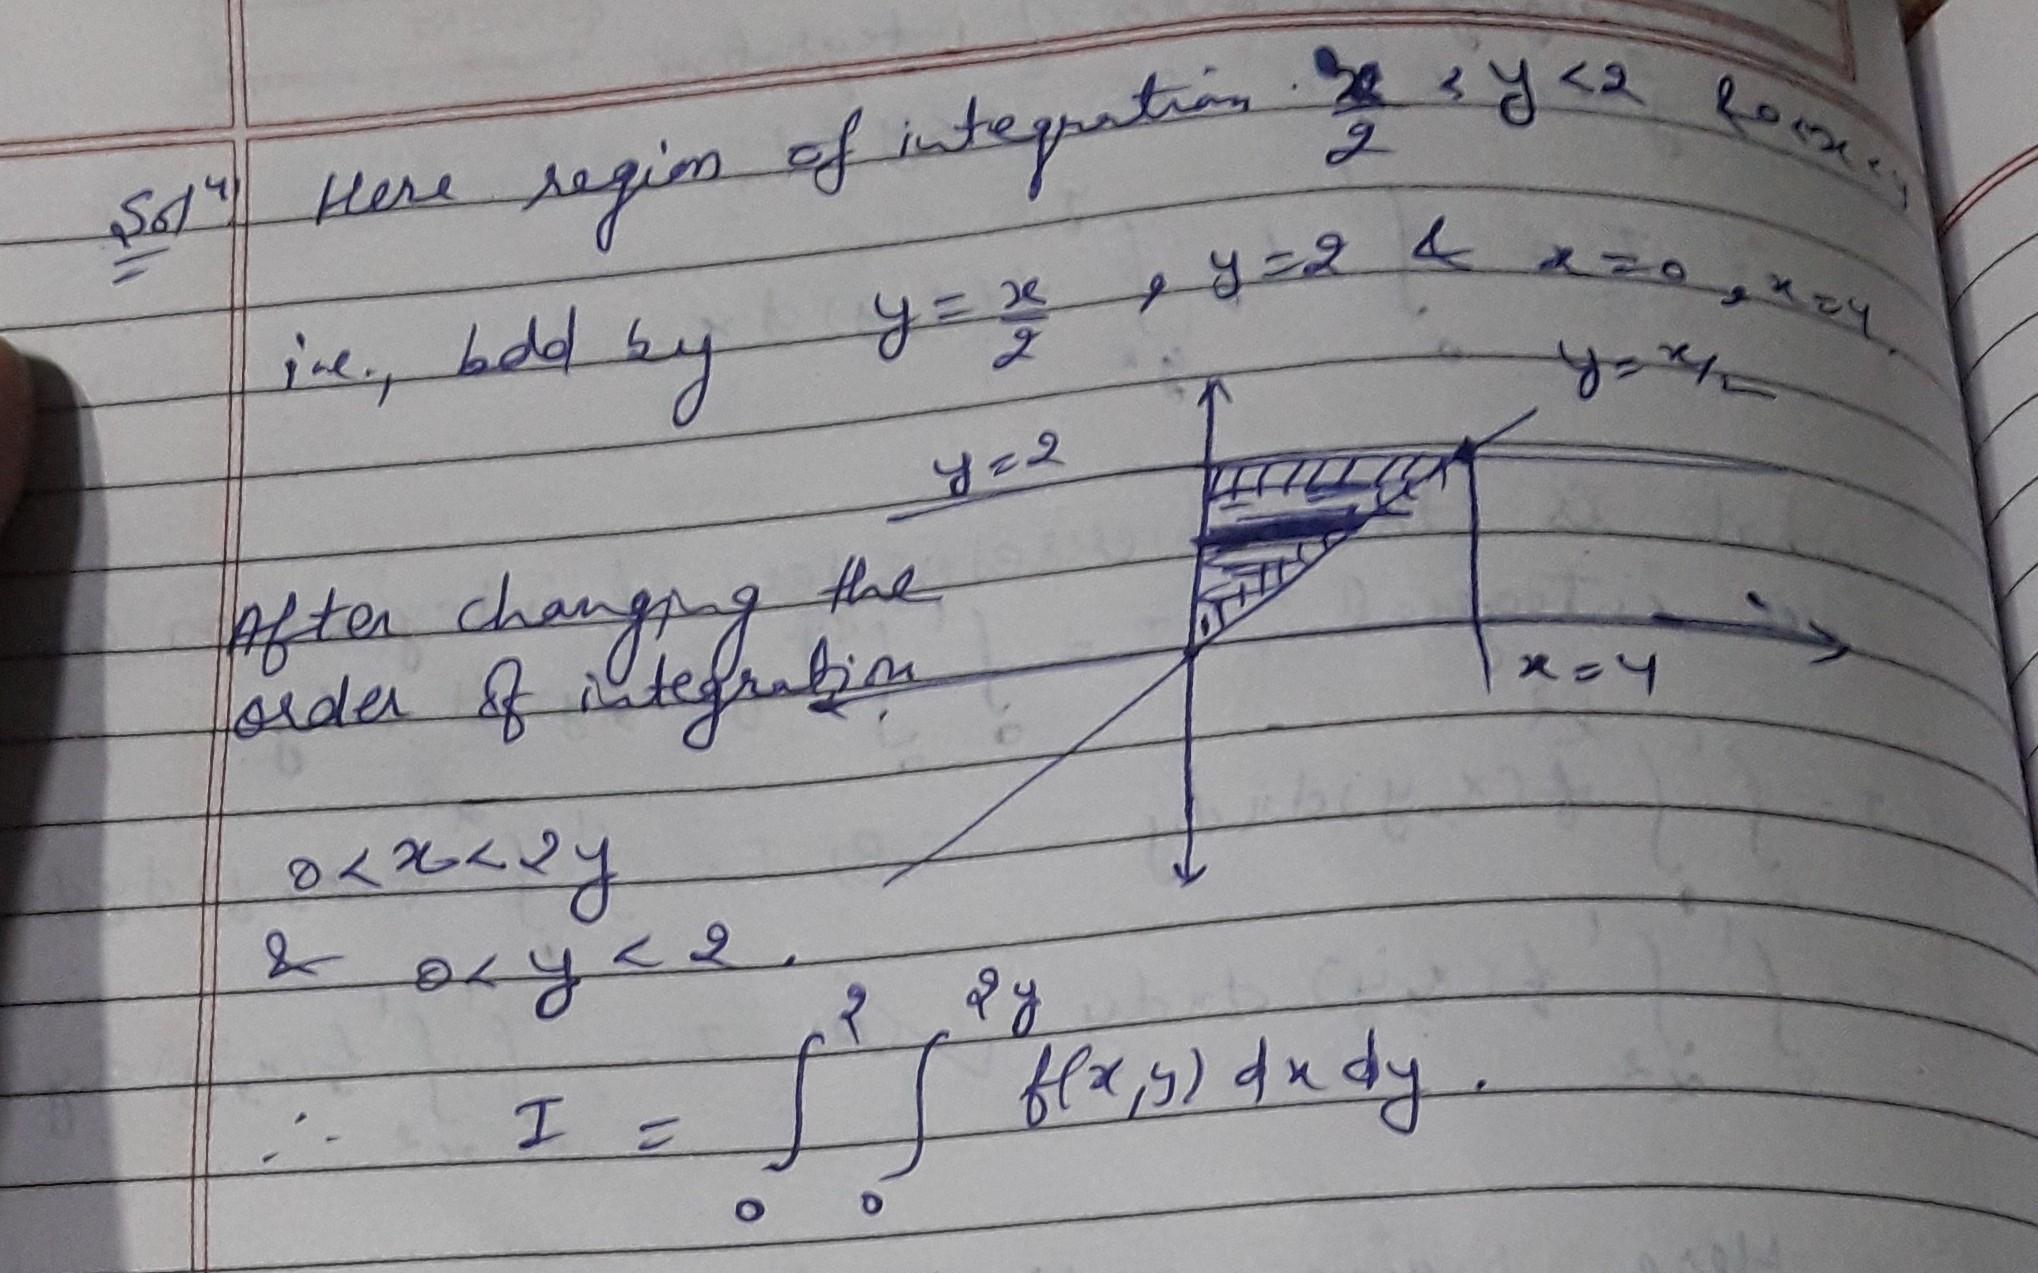 Solⁿ Here region of integration x/2 < y < 2 & 0<x<4
i.e., bdd by y = x/2 , y = 2 & x = 0 , x = 4.
y = x/2
y = 2
After changing the
order of integration
x = 4
0 < x < 2y
& 0 < y < 2 .
∴ I = ∫₀² ∫₀²ʸ f(x,y) dx dy .